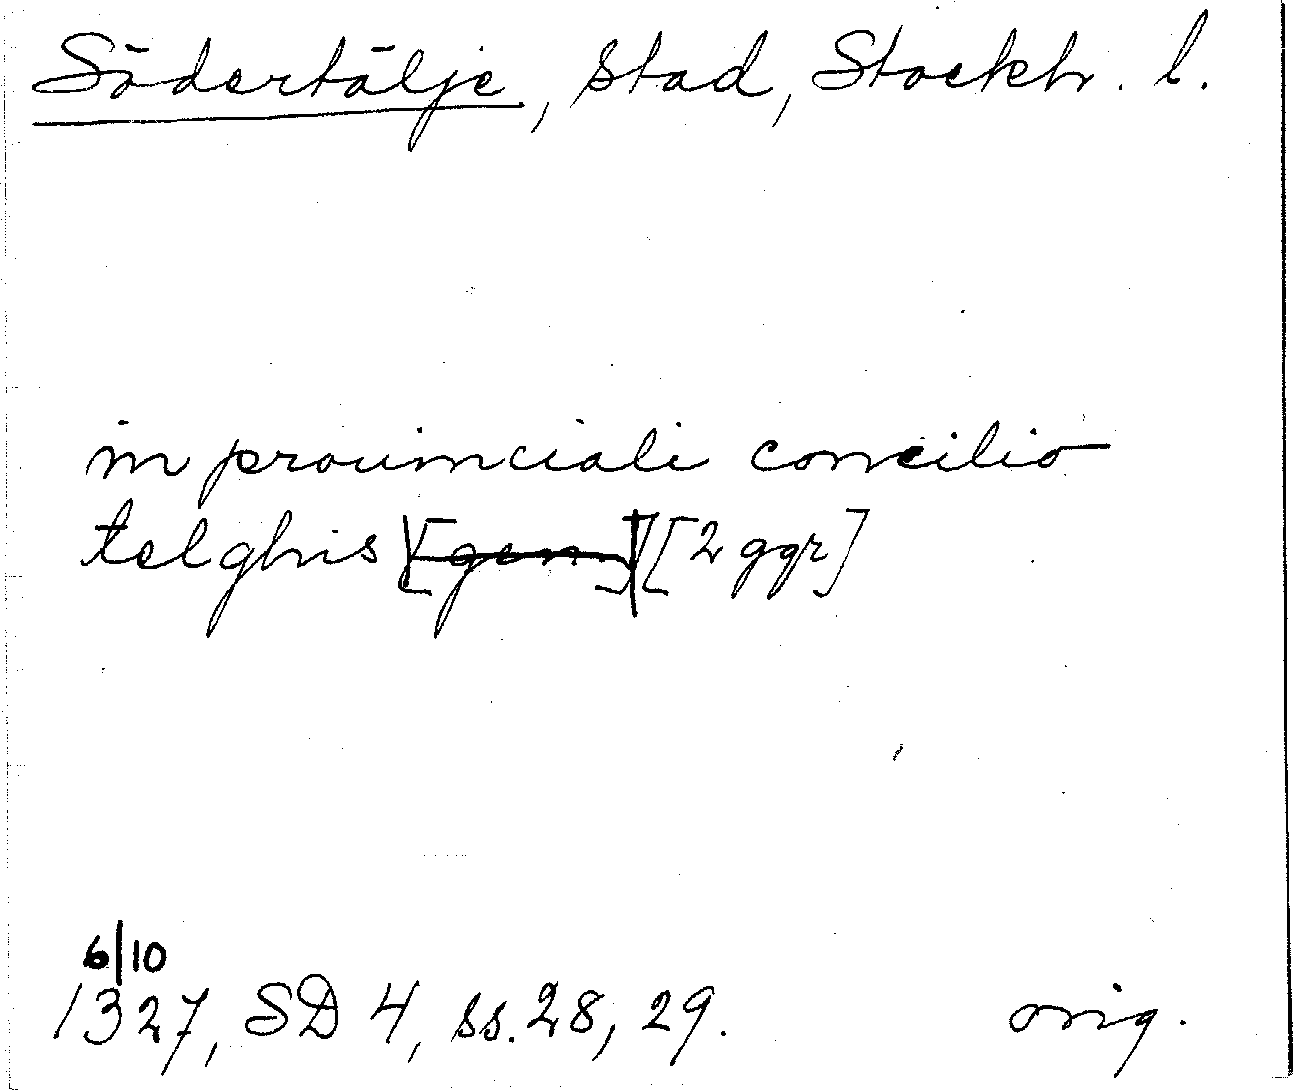 Södertälje, stad, Stockh. l.
in prouinciali concilio
telghis [gen] [2 ggr]
6/10
1327, SD 4, ss. 28, 29. orig.